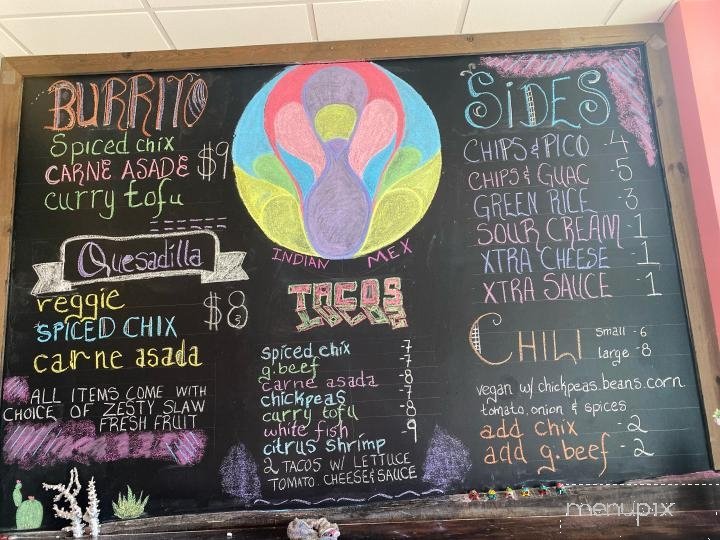 BURRITO
Spiced chix
CARNE ASADE $9
curry tofu
Quesadilla
veggie
SPICED CHIX $8
carne asada
ALL ITEMS COME WITH
CHOICE OF ZESTY SLAW
FRESH FRUIT
INDIAN MEX
TACOS
spiced chix -7
g.beef -7
carne asada -8
chickpeas -7
curry tofu -8
white fish -9
citrus shrimp
2 TACOS W/ LETTUCE
TOMATO. CHEESE & SAUCE
SiDES
CHIPS & PICO -4
CHIPS & GUAC -5
GREEN RICE -3
SOUR CREAM -1
XTRA CHEESE -1
XTRA SAUCE -1
CHILI small -6
large -8
vegan w/ chickpeas.beans.corn
tomato, onion & spices
add chix -2
add g.beef -2
menupix